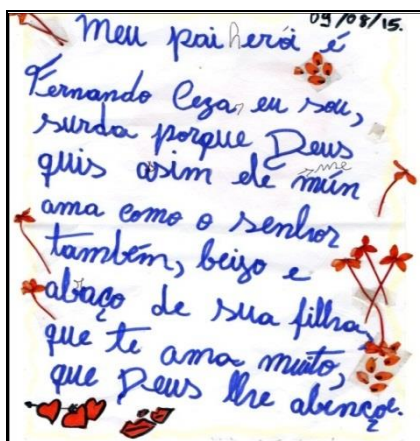 09/08/15.
Meu pai herói é
Fernando Cezar, eu sou,
surda porque Deus
quis asim ele me mim
ama como o senhor
também, beijo e
abraço de sua filha
que te ama muito,
que Deus lhe abençoe.